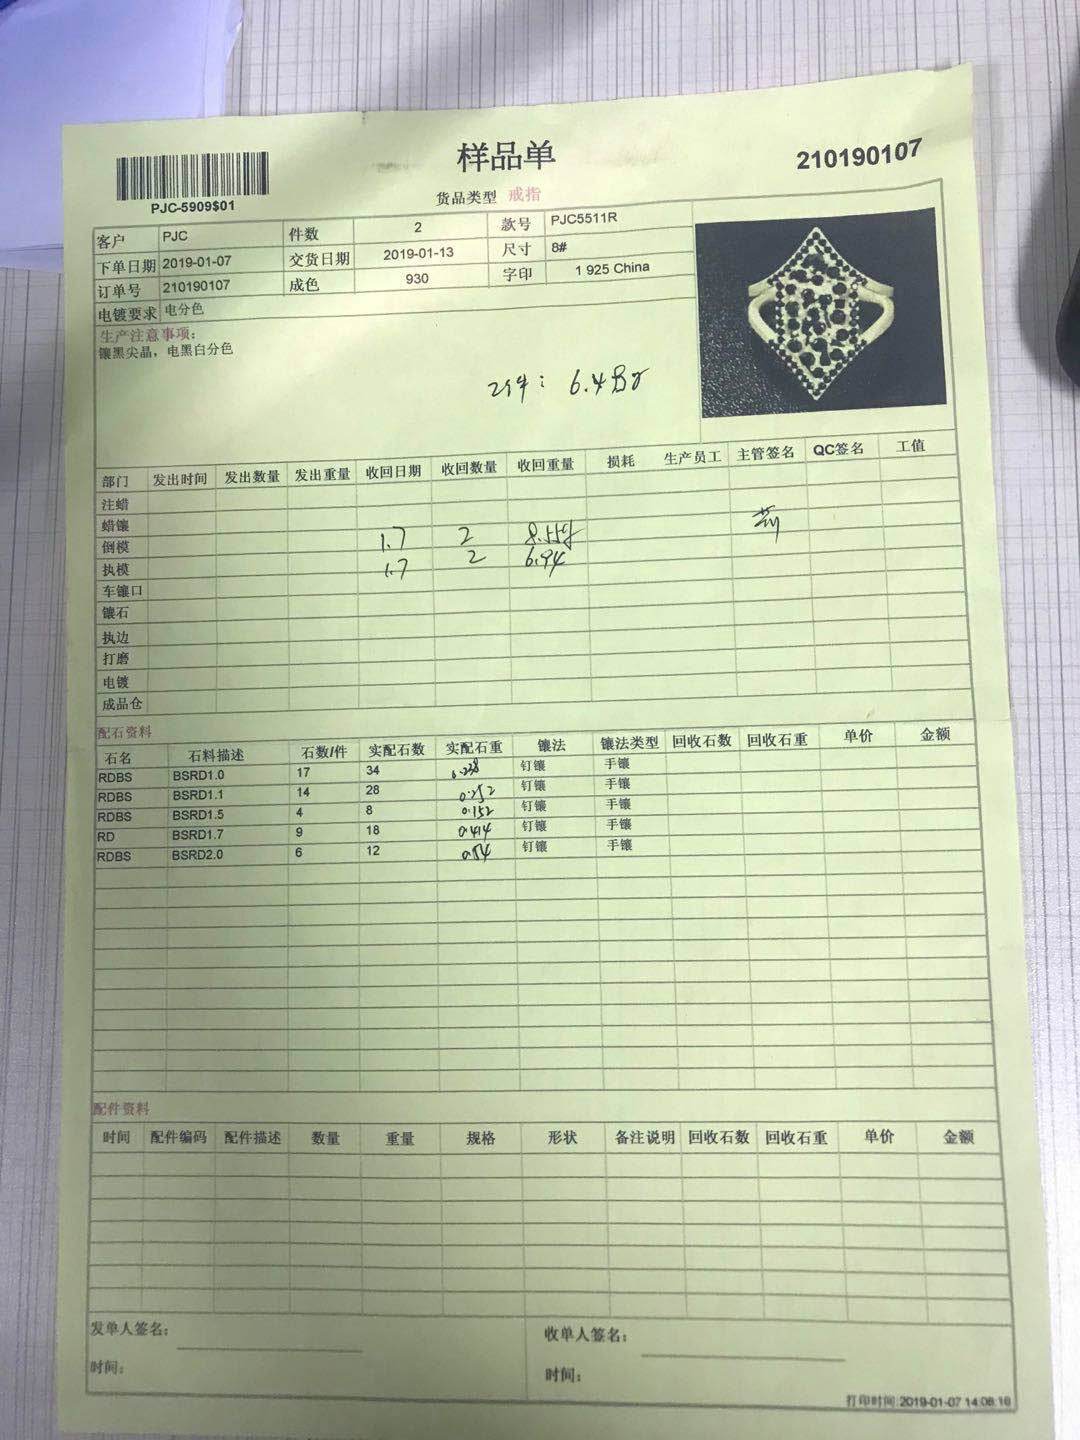 样品单
210190107
PJC-5909$01
货品类型 戒指
客户 PJC 件数 2 款号 PJC5511R
下单日期 2019-01-07 交货日期 2019-01-13 尺寸 8#
订单号 210190107 成色 930 字印 1 925 China
电镀要求 电分色
生产注意事项：
镶黑尖晶，电黑白分色
2件：6.48g
部门 发出时间 发出数量 发出重量 收回日期 收回数量 收回重量 损耗 生产员工 主管签名 QC签名 工值
注蜡
蜡镶
倒模 1.7 2 8.55g
执模 1.7 2 6.94
车镶口
镶石
执边
打磨
电镀
成品仓
配石资料
石名 石料描述 石数/件 实配石数 实配石重 镶法 镶法类型 回收石数 回收石重 单价 金额
RDBS BSRD1.0 17 34 0.238 钉镶 手镶
RDBS BSRD1.1 14 28 0.252 钉镶 手镶
RDBS BSRD1.5 4 8 0.152 钉镶 手镶
RD BSRD1.7 9 18 0.414 钉镶 手镶
RDBS BSRD2.0 6 12 钉镶 手镶
配件资料
时间 配件编码 配件描述 数量 重量 规格 形状 备注说明 回收石数 回收石重 单价 金额
发单人签名： 收单人签名：
时间： 时间：
打印时间:2019-01-07 14:06:16